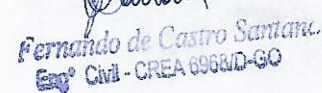 Fernando de Castro Santana
Engº Civil - CREA 6968/D-GO